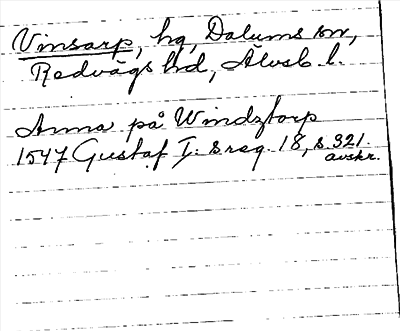 Vinsarp, hg, Dalums sn,
Redvägs hd, Älvsb. l.
Anna på Windztorp
1547 Gustaf I: s reg. 18, s. 321.
avskr.